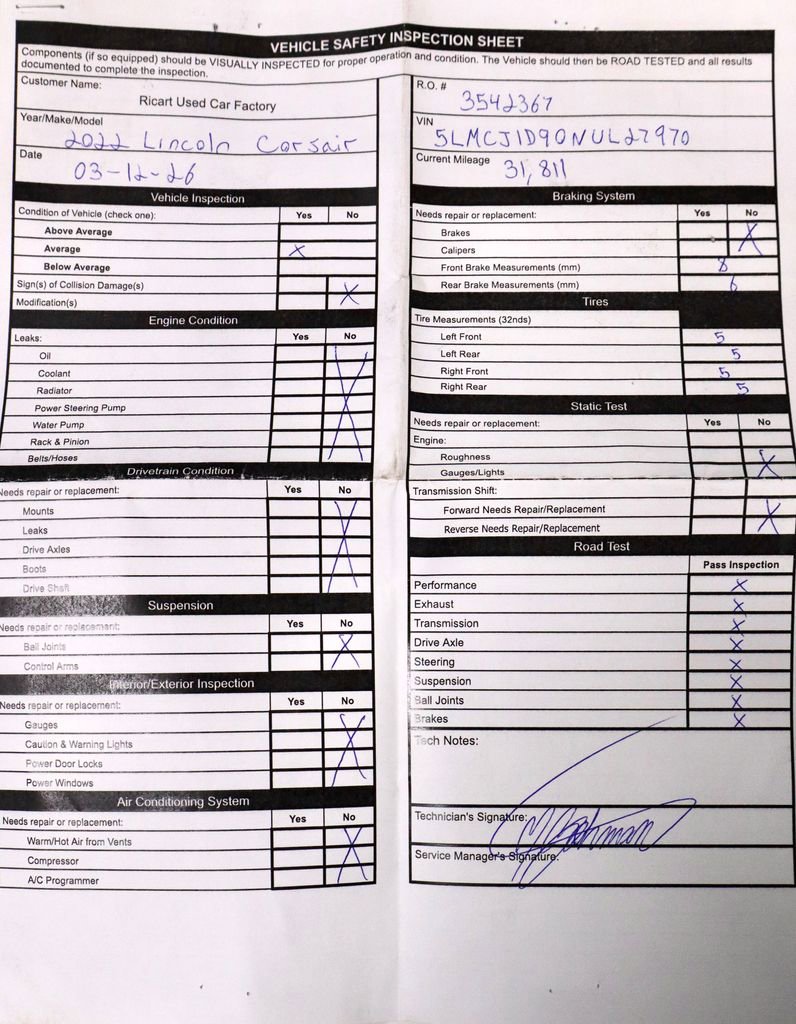 VEHICLE SAFETY INSPECTION SHEET
Components (if so equipped) should be VISUALLY INSPECTED for proper operation and condition. The Vehicle should then be ROAD TESTED and all results
documented to complete the inspection.
Customer Name:
Ricart Used Car Factory
Year/Make/Model
2022 Lincoln Corsair
Date
03-12-26
Vehicle Inspection
Condition of Vehicle (check one): Yes No
Above Average
Average X
Below Average
Sign(s) of Collision Damage(s)
Modification(s) X
Engine Condition
Leaks: Yes No
Oil
Coolant
Radiator
Power Steering Pump X
Water Pump
Rack & Pinion
Belts/Hoses
Drivetrain Condition
Needs repair or replacement: Yes No
Mounts
Leaks
Drive Axles X
Boots
Drive Shaft
Suspension
Needs repair or replacement: Yes No
Ball Joints X
Control Arms
Interior/Exterior Inspection
Needs repair or replacement: Yes No
Gauges
Caution & Warning Lights X
Power Door Locks
Power Windows
Air Conditioning System
Needs repair or replacement: Yes No
Warm/Hot Air from Vents
Compressor X
A/C Programmer
R.O. #
3542367
VIN
5LMCJ1D90NUL27970
Current Mileage 31,811
Braking System
Needs repair or replacement: Yes No
Brakes X
Calipers
Front Brake Measurements (mm) 8
Rear Brake Measurements (mm) 6
Tires
Tire Measurements (32nds)
Left Front 5
Left Rear 5
Right Front 5
Right Rear 5
Static Test
Needs repair or replacement: Yes No
Engine:
Roughness X
Gauges/Lights
Transmission Shift:
Forward Needs Repair/Replacement X
Reverse Needs Repair/Replacement
Road Test
Pass Inspection
Performance X
Exhaust X
Transmission X
Drive Axle X
Steering X
Suspension X
Ball Joints X
Brakes X
Tech Notes:
Technician's Signature:
Service Manager's Signature: